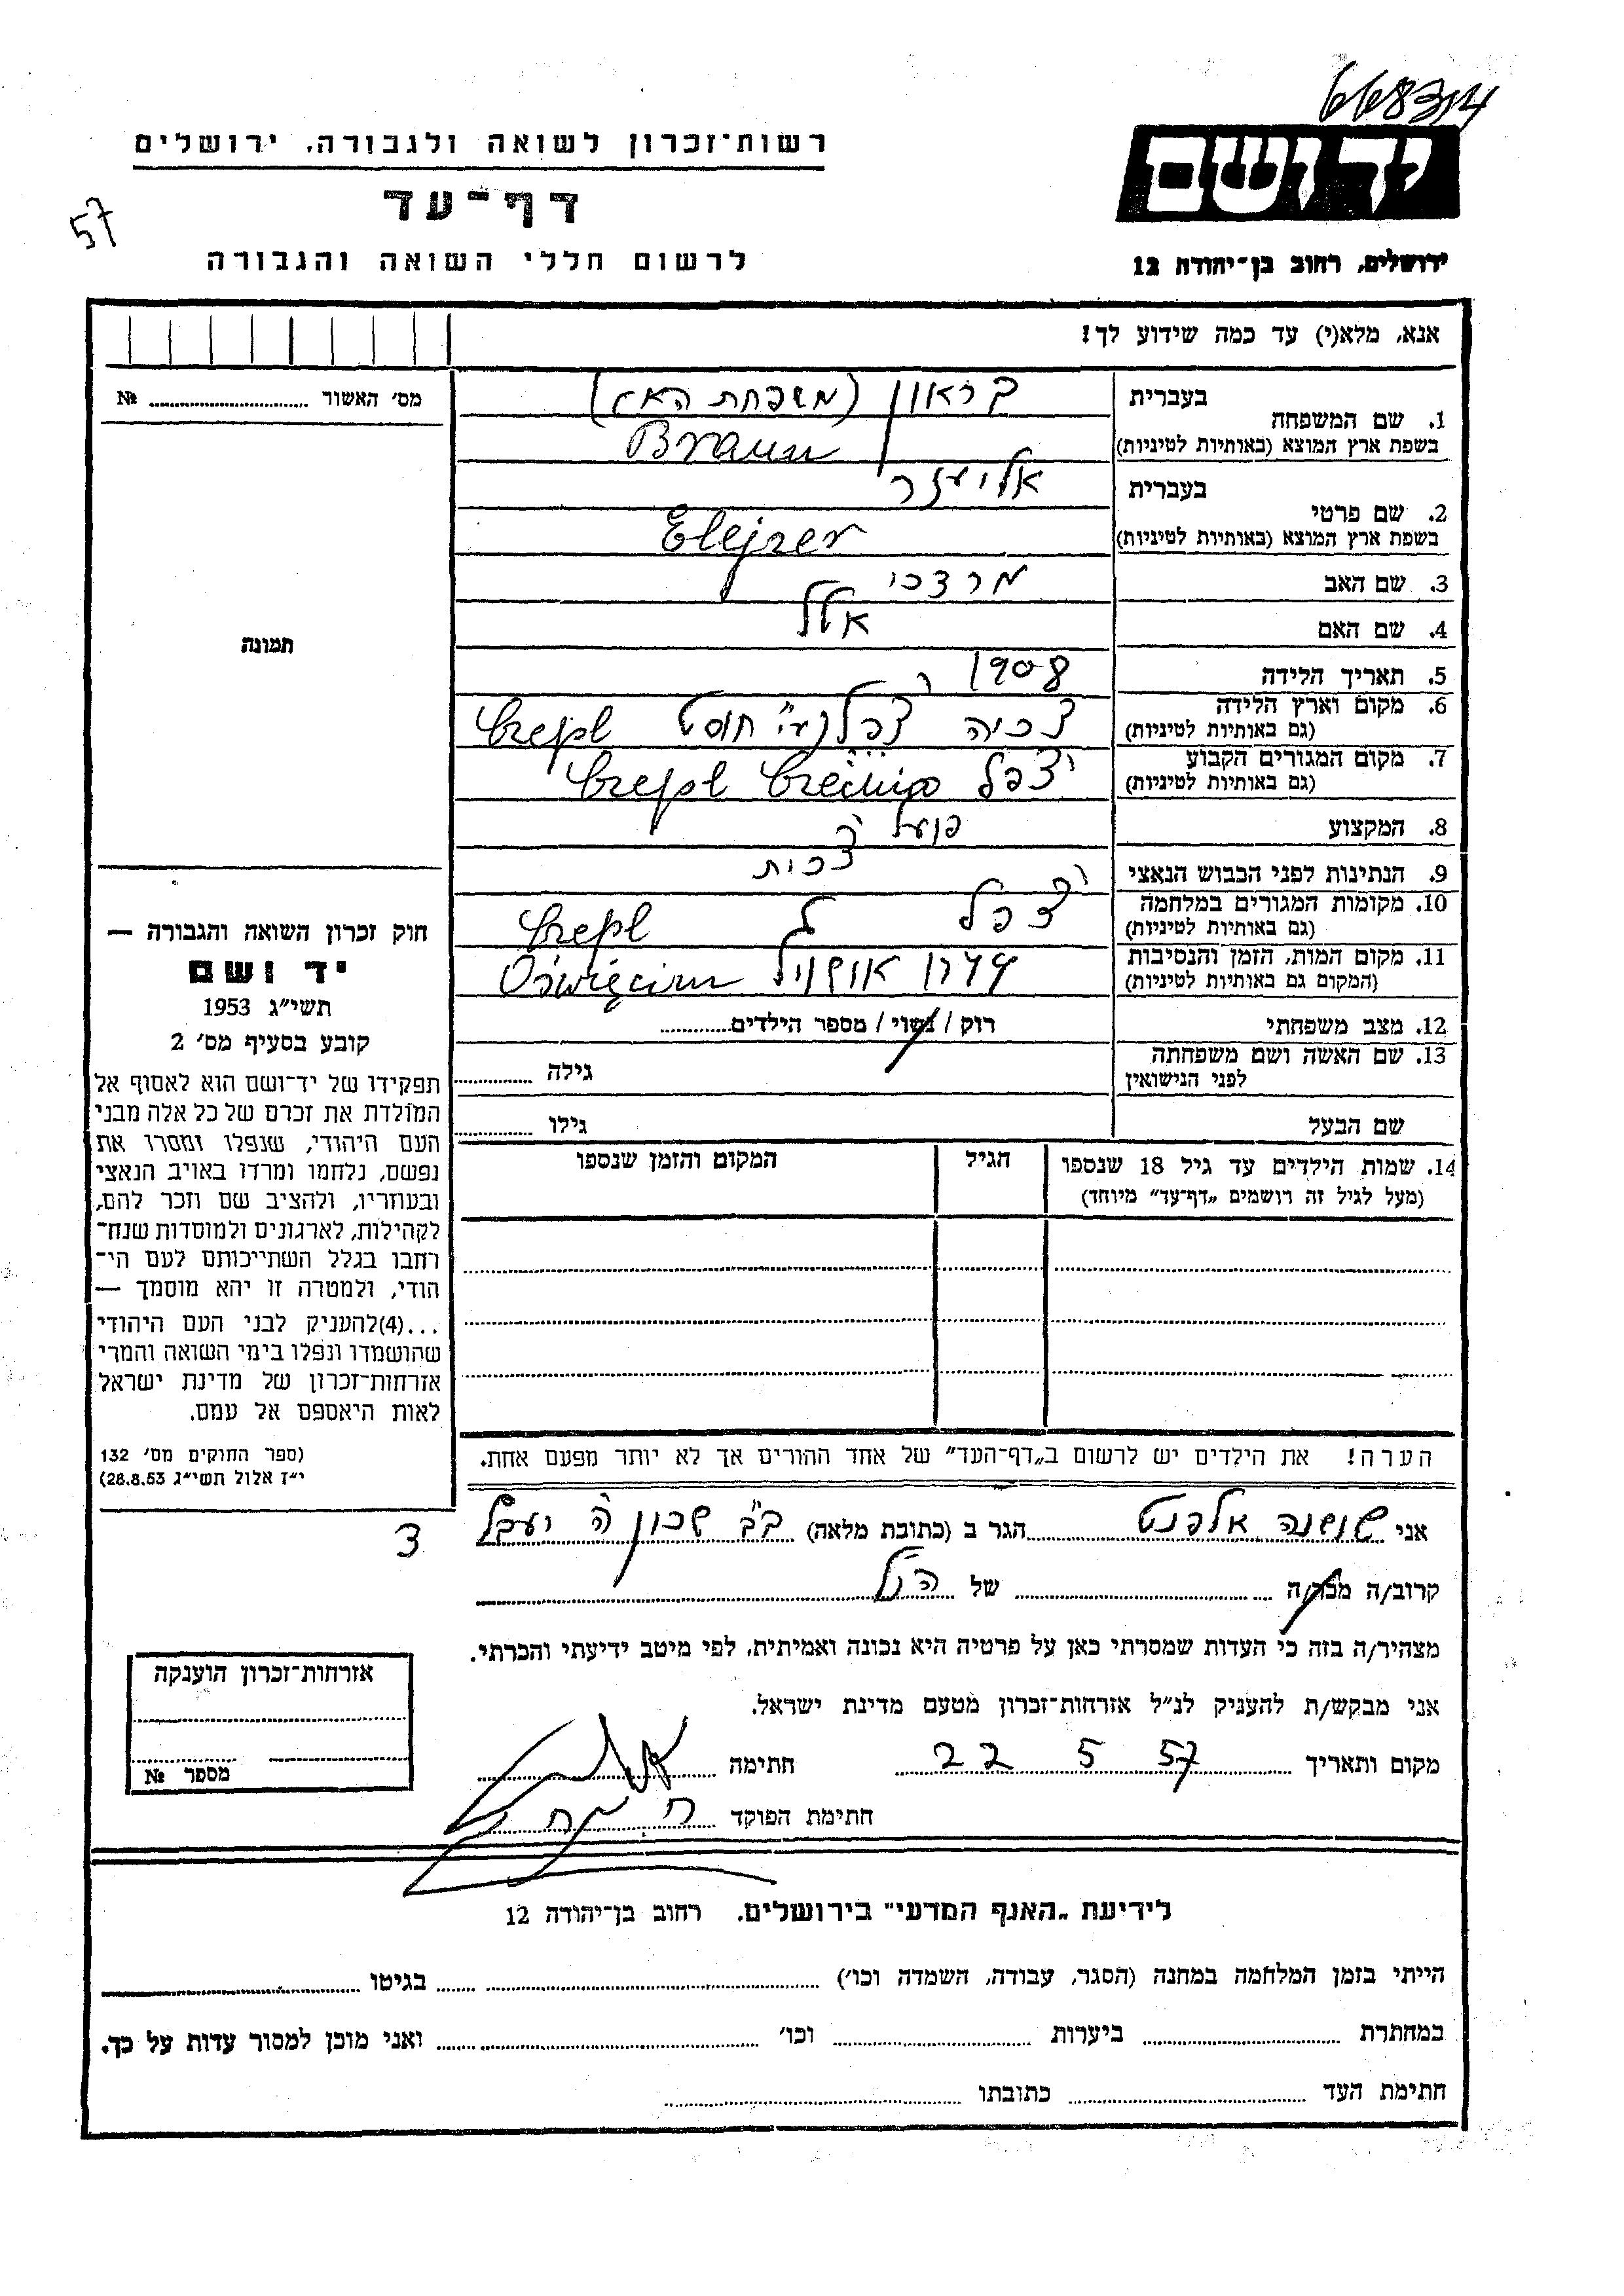 66834
רשות־זכרון לשואה ולגבורה, ירושלים
יד ושם
דף־עד
57
לרשום חללי השואה והגבורה
ירושלים, רחוב בן־יהודה 12
אנא, מלא(י) עד כמה שידוע לך!
מס׳ האשור № 
1. שם המשפחה
בעברית
בראון (משפחת האם)
בשפת ארץ המוצא (באותיות לטיניות)
Braun
2. שם פרטי
בעברית
אליעזר
בשפת ארץ המוצא (באותיות לטיניות)
Elejzer
3. שם האב מרדכי
4. שם האם
5. תאריך הלידה 1908
6. מקום וארץ הלידה
(גם באותיות לטיניות)
7. מקום המגורים הקבוע
(גם באותיות לטיניות)
8. המקצוע פועל
9. הנתינות לפני הכבוש הנאצי
10. מקומות המגורים במלחמה
(גם באותיות לטיניות)
11. מקום המות, הזמן והנסיבות
(המקום גם באותיות לטיניות)
Oświęcim
12. מצב משפחתי רוק / נשוי / מספר הילדים
13. שם האשה ושם משפחתה
לפני הנישואין
גילה
שם הבעל גילו
14. שמות הילדים עד גיל 18 שנספו הגיל המקום והזמן שנספו
(מעל לגיל זה רושמים „דף־עד״ מיוחד)
הערה! את הילדים יש לרשום ב„דף־העד״ של אחד ההורים אך לא יותר מפעם אחת.
תמונה
חוק זכרון השואה והגבורה —
יד ושם
תשי״ג 1953
קובע בסעיף מס׳ 2
תפקידו של יד־ושם הוא לאסוף אל
המולדת את זכרם של כל אלה מבני
העם היהודי, שנפלו ומסרו את
נפשם, נלחמו ומרדו באויב הנאצי
ובעוזריו, ולהציב שם וזכר להם,
לקהילות, לארגונים ולמוסדות שנח־
רחבו בגלל השתייכותם לעם הי־
הודי, ולמטרה זו יהא מוסמך —
...(4)להעניק לבני העם היהודי
שהושמדו ונפלו בימי השואה והמרי
אזרחות־זכרון של מדינת ישראל
לאות היאספם אל עמם.
(ספר החוקים מס׳ 132
י״ז אלול תשי״ג 28.8.53)
אני שושנה אלפנט הגר ב (כתובת מלאה) ב״ב שכון ה
קרוב/ה מכר/ה של הנ״ל
מצהיר/ה בזה כי העדות שמסרתי כאן על פרטיה היא נכונה ואמיתית, לפי מיטב ידיעתי והכרתי.
אני מבקש/ת להעניק לנ״ל אזרחות־זכרון מטעם מדינת ישראל.
מקום ותאריך 22 5 57 חתימה
חתימת הפוקד
אזרחות־זכרון הוענקה
מספר №
לידיעת „האגף המדעי״ בירושלים, רחוב בן־יהודה 12
הייתי בזמן המלחמה במחנה (הסגר, עבודה, השמדה וכו׳) בגיטו
במחתרת ביערות וכו׳ ואני מוכן למסור עדות על כך.
חתימת העד כתובתו